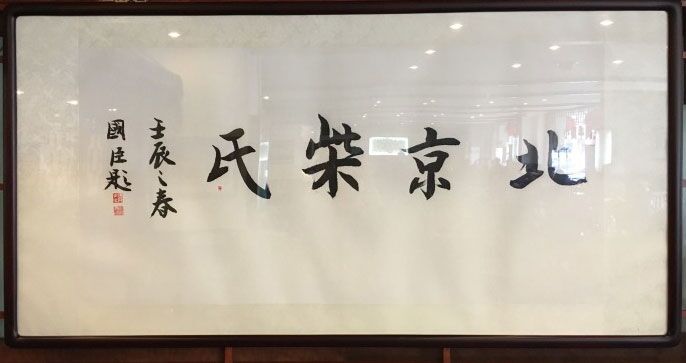 北京柴氏
壬辰之春
國臣題